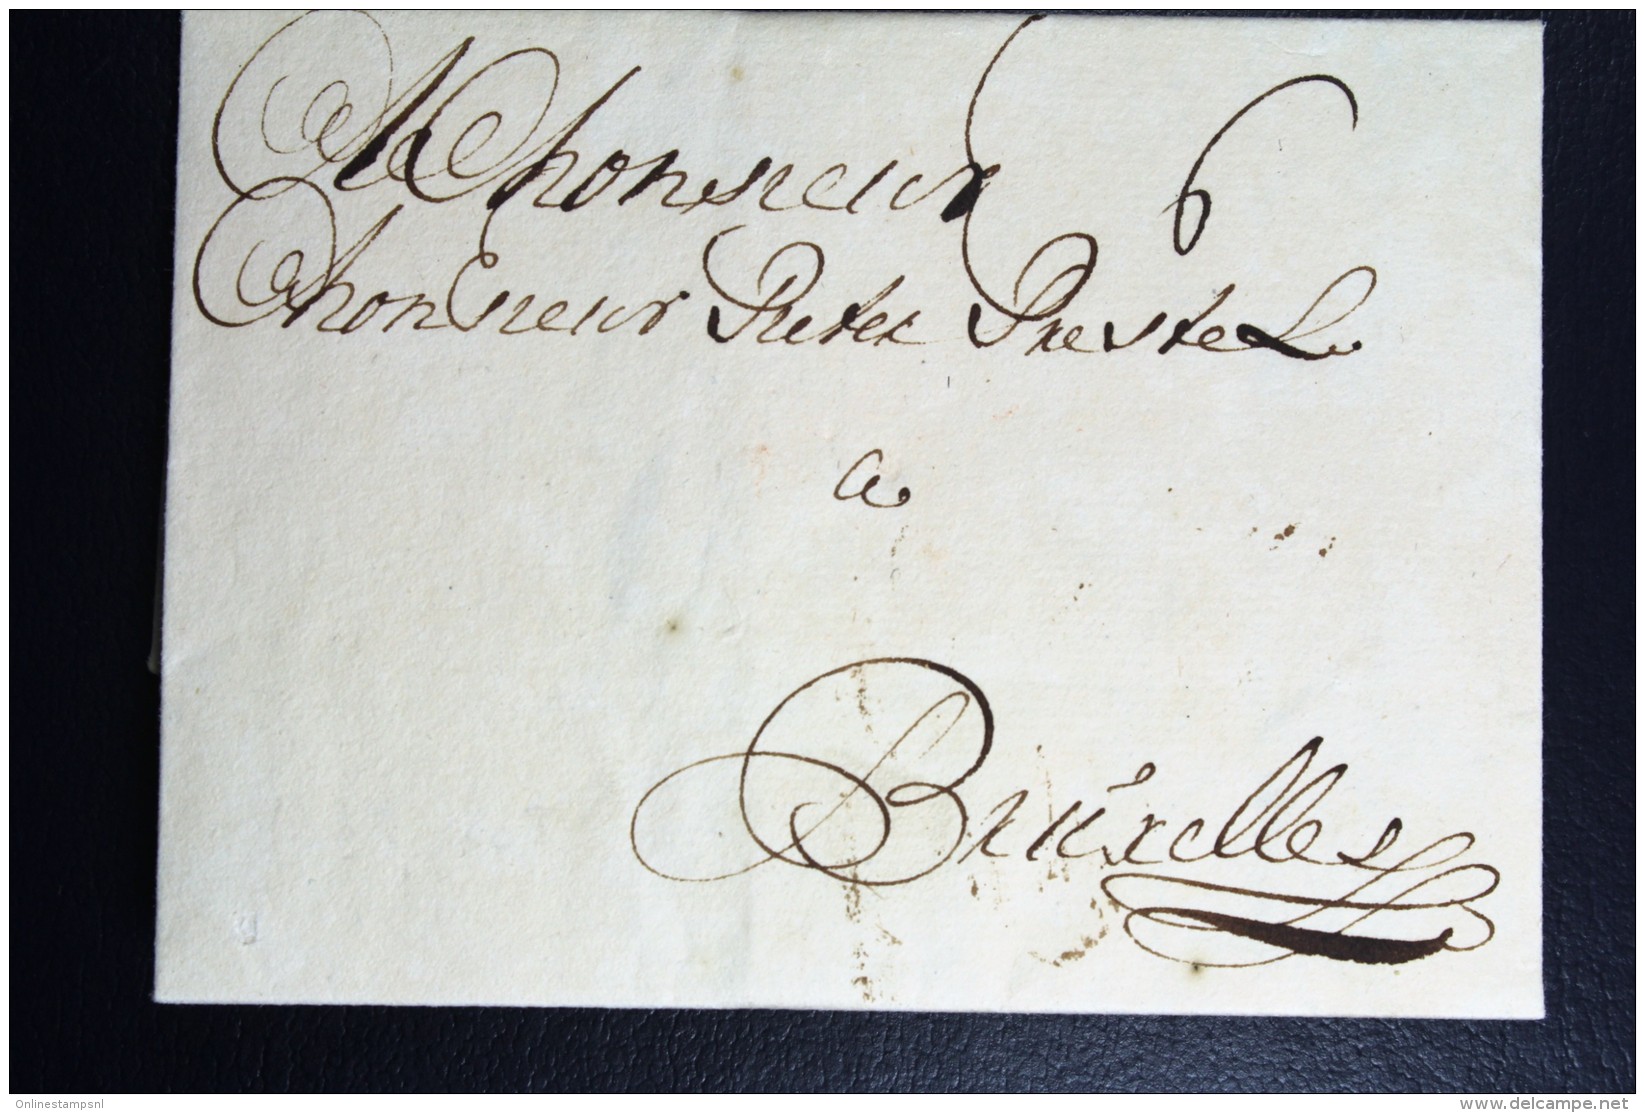 Monsieur 6
Monsieur Pieter Prestel.
a.
Bruxelles
Onlinestampsnl
www.delcampe.net